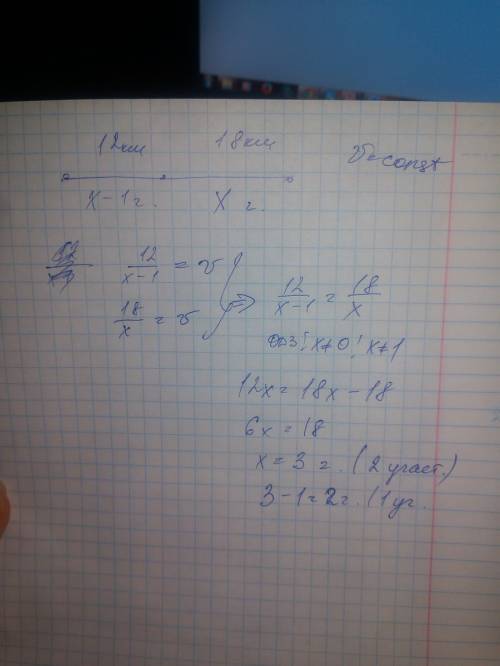 12км 18км
v=const
x-1г. x г.
12/(x-1) = v
18/x = v
=> 12/(x-1) = 18/x
ОДЗ: x≠0; x≠1
12x = 18x - 18
6x = 18
x = 3 г. (2 участ.)
3-1=2г. (1 уч.